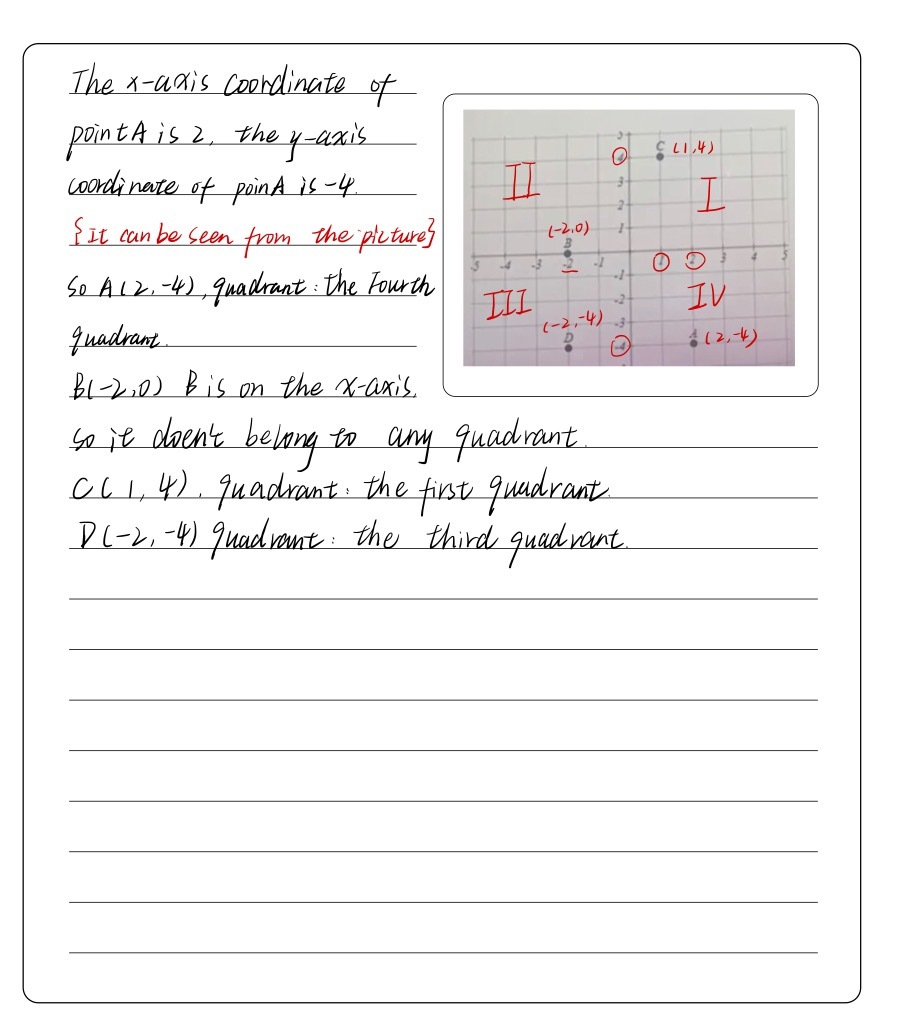 The x-axis coordinate of
point A is 2, the y-axis
coordinate of poin A is -4.
{It can be seen from the picture}
so A(2,-4), quadrant: the Fourth
quadrant.
B(-2,0) B is on the x-axis.
so it doen't belong to any quadrant.
C(1,4). quadrant: the first quadrant.
D(-2,-4) quadrant: the third quadrant.
5
4 C (1,4)
II 3 I
2
(-2,0) 1
B
-5 -4 -3 -2 -1 1 2 3 4 5
-1
III -2 IV
(-2,-4) -3
D -4 A (2,-4)